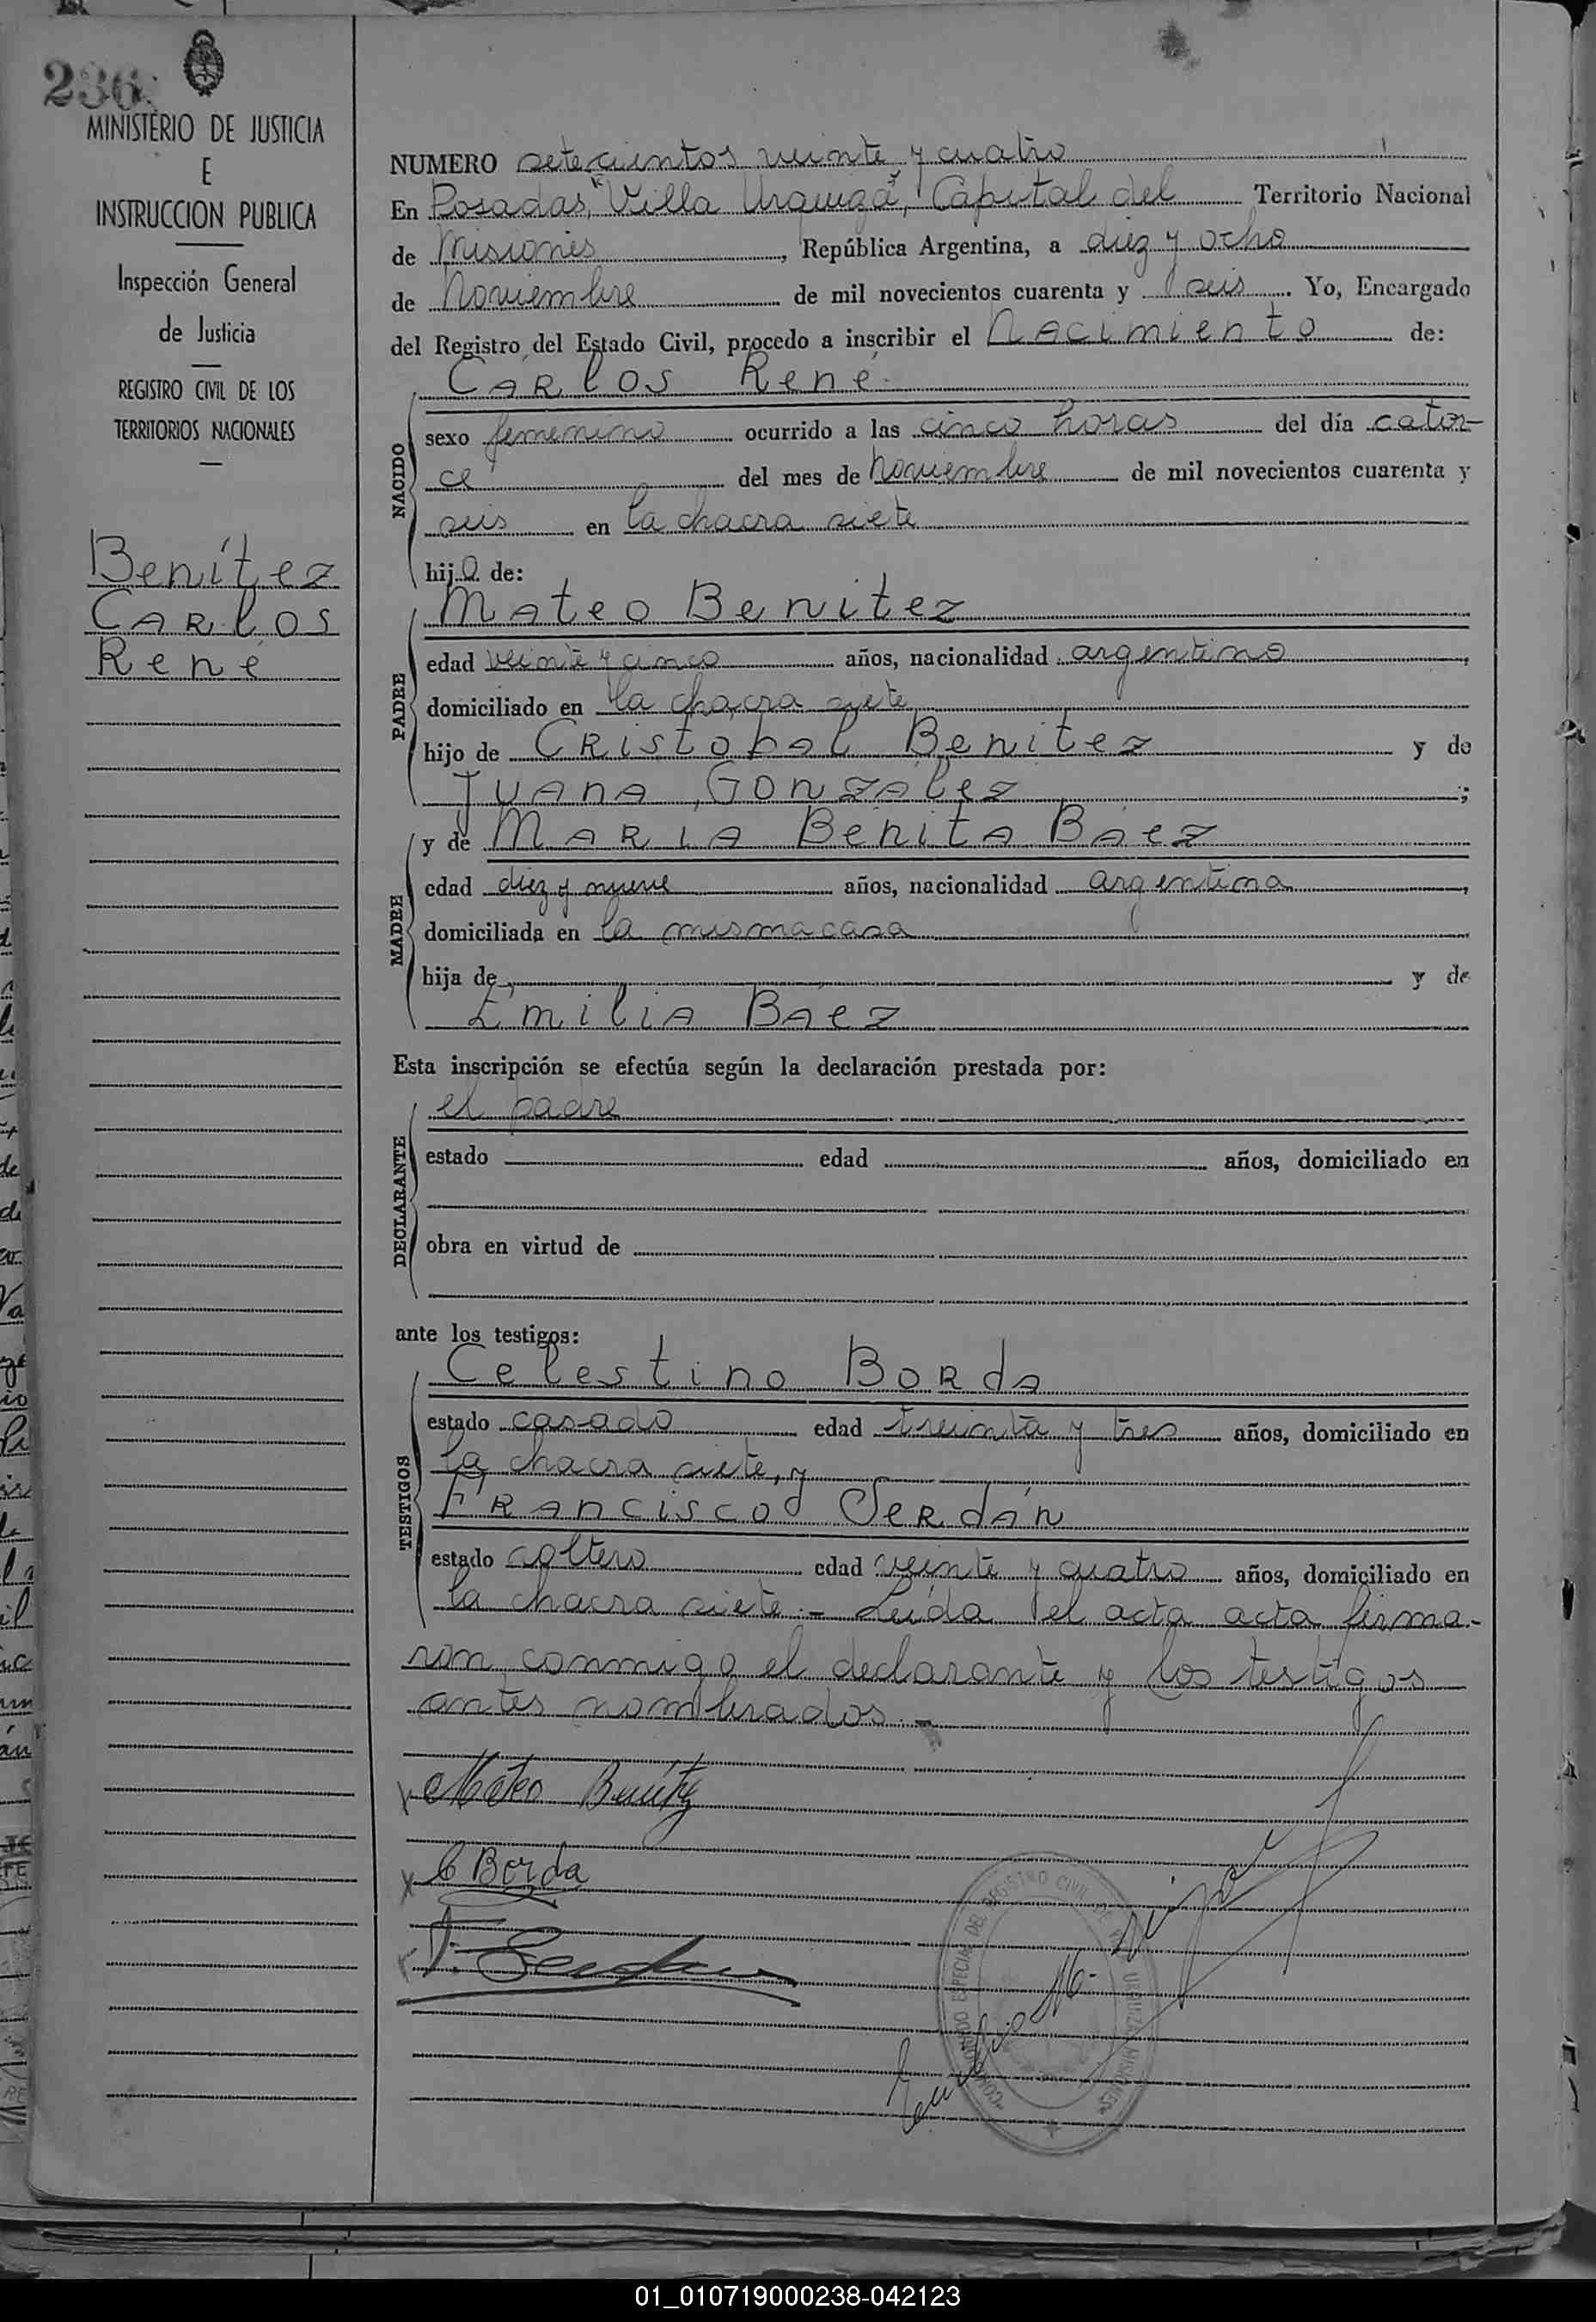 236
MINISTERIO DE JUSTICIA
E
INSTRUCCION PUBLICA
Inspección General
de Justicia
REGISTRO CIVIL DE LOS
TERRITORIOS NACIONALES
Benítez
Carlos
René
NUMERO setecientos veinte y cuatro
En Posadas, "Villa Urquiza", Capital del Territorio Nacional
de Misiones, República Argentina, a diez y ocho
de Noviembre de mil novecientos cuarenta y seis. Yo, Encargado
del Registro del Estado Civil, procedo a inscribir el Nacimiento de:
Carlos René
NACIDO
sexo femenino ocurrido a las cinco horas del día cator-
ce del mes de Noviembre de mil novecientos cuarenta y
seis en la chacra siete
hijo de:
PADRE
Mateo Benitez
edad veinte y cinco años, nacionalidad argentino,
domiciliado en la chacra siete
hijo de Cristobal Benitez y de
Juana González;
MADRE
y de María Benita Báez
edad diez y nueve años, nacionalidad argentina,
domiciliada en la misma casa
hija de y de
Emilia Báez
Esta inscripción se efectúa según la declaración prestada por:
DECLARANTE
el padre
estado edad años, domiciliado en
obra en virtud de
ante los testigos:
TESTIGOS
Celestino Borda
estado casado edad treinta y tres años, domiciliado en
la chacra siete, y
Francisco Serdán
estado soltero edad veinte y cuatro años, domiciliado en
la chacra siete.- Leída el acta acta firma-
ron conmigo el declarante y los testigos
antes nombrados.-
Mateo Benítez
C Borda
F. Serdan
REGISTRO CIVIL
URQUIZA MISIONES
01_010719000238-042123